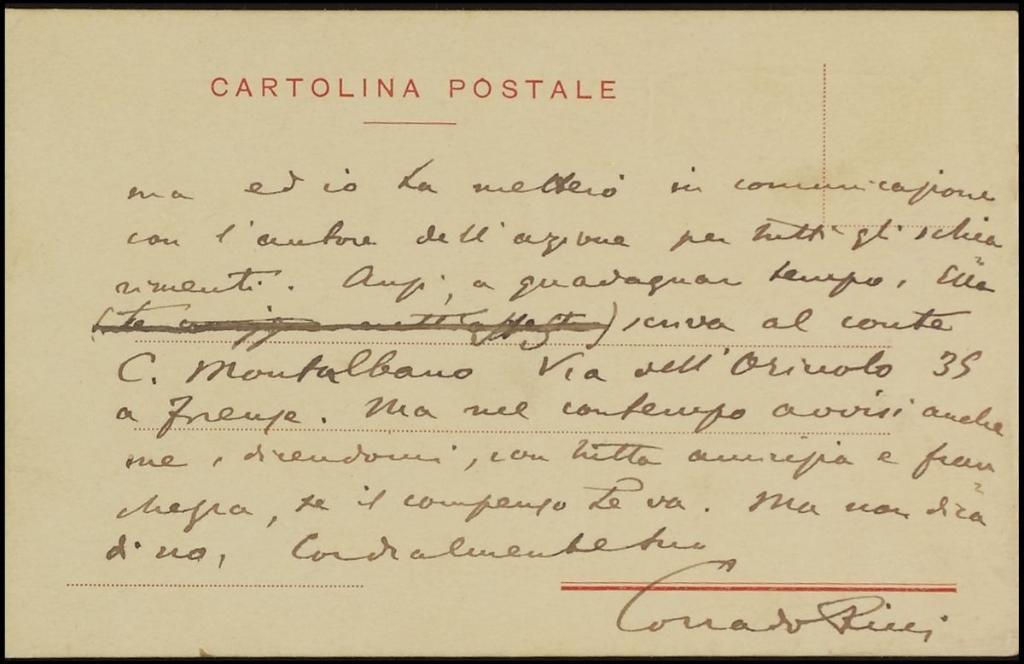 CARTOLINA POSTALE
ma ed io La metterò in comunicazione
con l'autore dell'azione per tutti gli schia
rimenti. Anzi, a guadagnar tempo, Ella
scriva al conte
C. Montalbano Via dell'Oriuolo 35
a Firenze. Ma nel contempo avvisi anche
me, dicendomi, con tutta amicizia e fran
chezza, se il compenso Le va. Ma non dica
di no. Cordialmente suo
Corrado Ricci